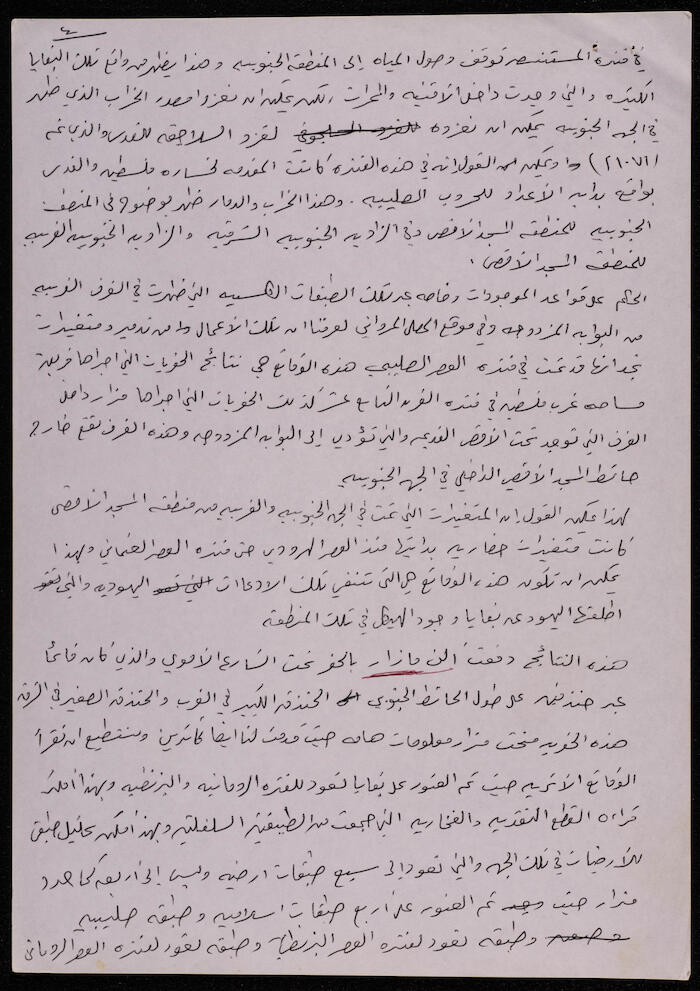 ٤
في فترة المستنصر توقف وصول المياه إلى المنطقة الجنوبيه وهذا يظهر من واقع تلك البقايا
الكثيره والتي وجدت داخل الاقنيه والممرات، لكن يمكن ان نعزوا مصدر الخراب الذي ظهر
في الجهه الجنوبيه يمكن ان نعزوه للغزو السلجوقي لغزو السلاجقه للقدس والذي تم
(١٠٧١م) ويمكن القول انه في هذه الفتره كانت المقدمه لخساره فلسطين والقدس
بواقع بدايه الأعداد للحروب الصليبيه. وهذا الخراب والدمار ظهر بوضوح في المنطقه
الجنوبيه لمنطقه المسجد الاقصى وفي الزاويه الجنوبيه الشرقيه والزاويه الجنوبيه الغربيه
لمنطقه المسجد الاقصى.
الحكم على قواعد الموجودات وخاصه بعد تلك الطبقات الكلسيه التي ظهرت في الغرف الغربيه
من البوابه المزدوجه وفي موقع المصلى المرواني لعرفنا ان تلك الأعمال من تدمير ومتغيرات
نجد انها قد تمت في فتره العصر الصليبي هذه الوقائع هي نتائج الحفريات التي اجراها فريق
مساحه غرب فلسطين في فتره القرن التاسع عشر كذلك الحفريات التي اجراها مزار داخل
الغرف التي توجد تحت الأقصى القديمه والتي تؤدي إلى البوابه المزدوجه وهذه الغرف تقع خارج
حائط المسجد الأقصى الداخلي في الجهه الجنوبيه
لهذا يمكن القول ان المتغيرات التي تمت في الجهه الجنوبيه والغربيه من منطقه المسجد الاقصى
كانت متغيرات حضاريه بدايتها منذ العصر الهرودي حتى فتره العصر العثماني وبهذا
يمكن ان تكون هذه الوقائع هي التي تنفي تلك الادعاءات التي تعو اليهوديه والتي تعو
اطلقها اليهود عن بقايا وجود الهيكل في تلك المنطقه
هذه النتائج دفعت الن مازار بالحفر تحت الشارع الأموي والذي كان قائماً
عبر خندقين على طول الحائط الجنوبي الخندق الكبير في الغرب والخندق الصغير في الشرق
هذه الحفريه منحت مزار معلومات هامه حيث قدمت لنا ايضاً كأثريين ونستطيع ان نقرأ
الوقائع الأثريه حيث تم العثور على بقايا تعود للفتره الرومانيه والبيزنطيه وبهذا أمكن
قراءه القطع النقديه والفخاريه التي جمعت من الطبقيه السفلتيه وبهذا امكن تحليل طبق
للأرضيات في تلك الجهه والتي تعود إلى سبع طبقات ارضيه وليس إلى أربعه كما حدد
مزار حيث وجد تم العثور على أربع طبقات اسلاميه وطبقه صليبيه
وطبقه وطبقه تعود لفتره العصر البيزنطي وطبقه تعود لفتره العصر الروماني